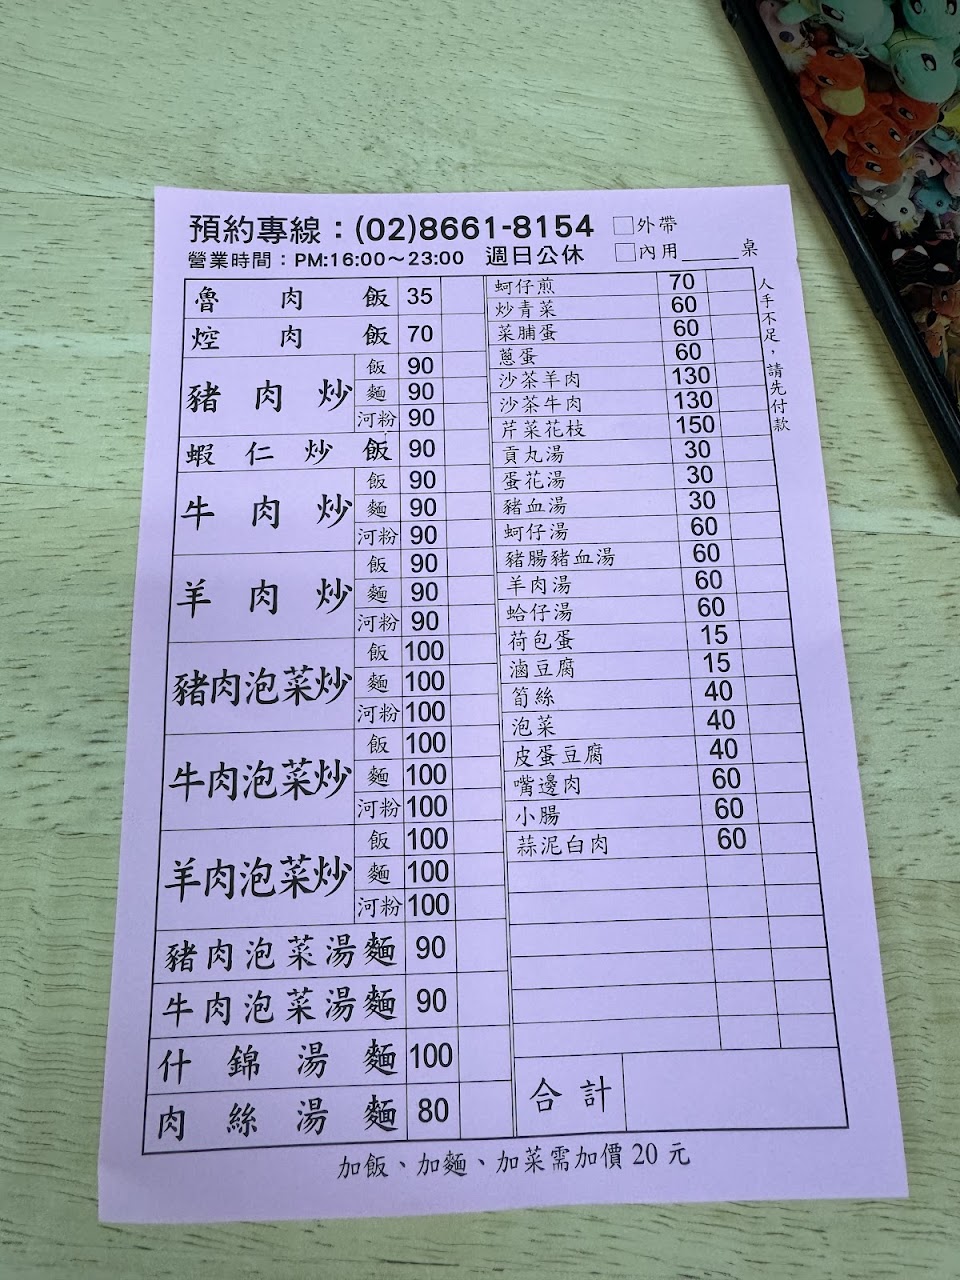 預約專線：(02)8661-8154 □外帶
營業時間：PM:16:00～23:00 週日公休 □內用_____桌
人手不足，請先付款
魯肉飯 35
焢肉飯 70
豬肉炒 飯 90
麵 90
河粉 90
蝦仁炒飯 90
牛肉炒 飯 90
麵 90
河粉 90
羊肉炒 飯 90
麵 90
河粉 90
豬肉泡菜炒 飯 100
麵 100
河粉 100
牛肉泡菜炒 飯 100
麵 100
河粉 100
羊肉泡菜炒 飯 100
麵 100
河粉 100
豬肉泡菜湯麵 90
牛肉泡菜湯麵 90
什錦湯麵 100
肉絲湯麵 80
蚵仔煎 70
炒青菜 60
菜脯蛋 60
蔥蛋 60
沙茶羊肉 130
沙茶牛肉 130
芹菜花枝 150
貢丸湯 30
蛋花湯 30
豬血湯 30
蚵仔湯 60
豬腸豬血湯 60
羊肉湯 60
蛤仔湯 60
荷包蛋 15
滷豆腐 15
筍絲 40
泡菜 40
皮蛋豆腐 40
嘴邊肉 60
小腸 60
蒜泥白肉 60
合計
加飯、加麵、加菜需加價 20 元